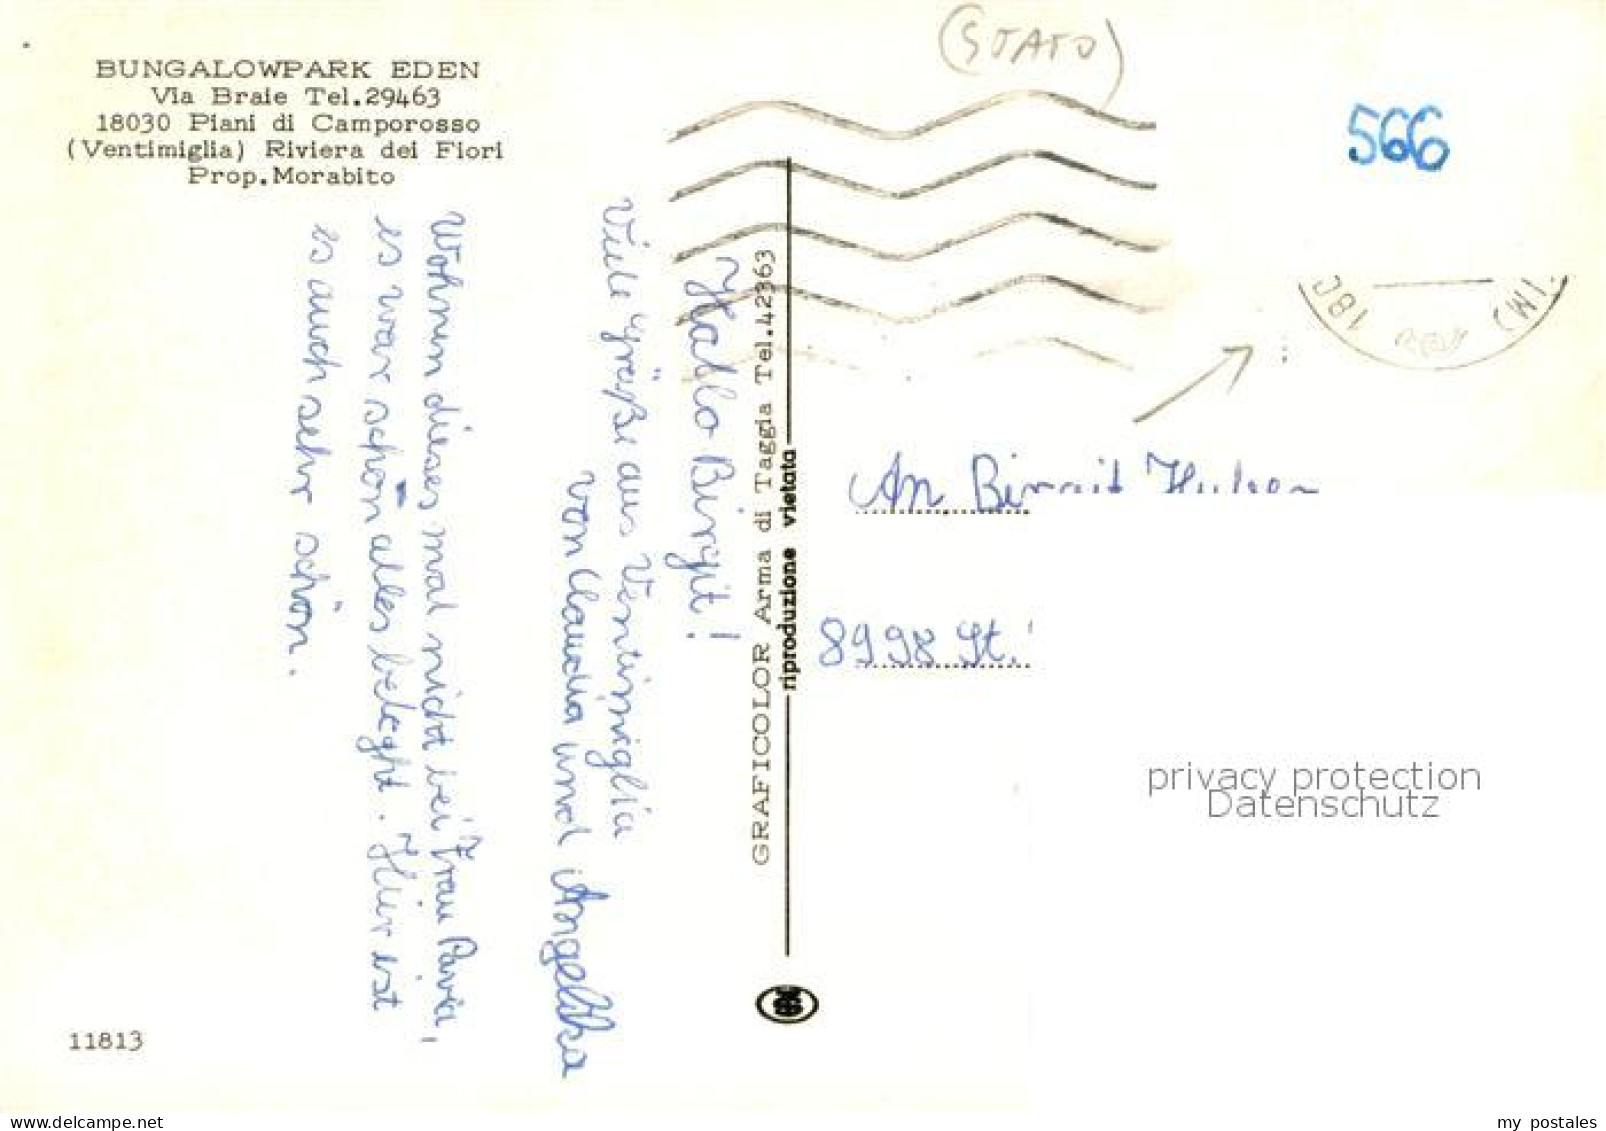 BUNGALOWPARK EDEN
Via Braie Tel.29463
18030 Piani di Camporosso
(Ventimiglia) Riviera dei Fiori
Prop.Morabito
(STATO)
566
18C
(IM)
Hallo Birgit!
Viele Grüße aus Ventimiglia
von Claudia und Angelika
Wohnen dieses mal nicht bei Frau Pavia,
es war schon alles beleght. Hier ist
es auch sehr schön.
GRAFICOLOR Arma di Taggia Tel.42363
riproduzione vietata
An Birgit
8998 St.
privacy protection
Datenschutz
11813
www.delcampe.net
my_postales